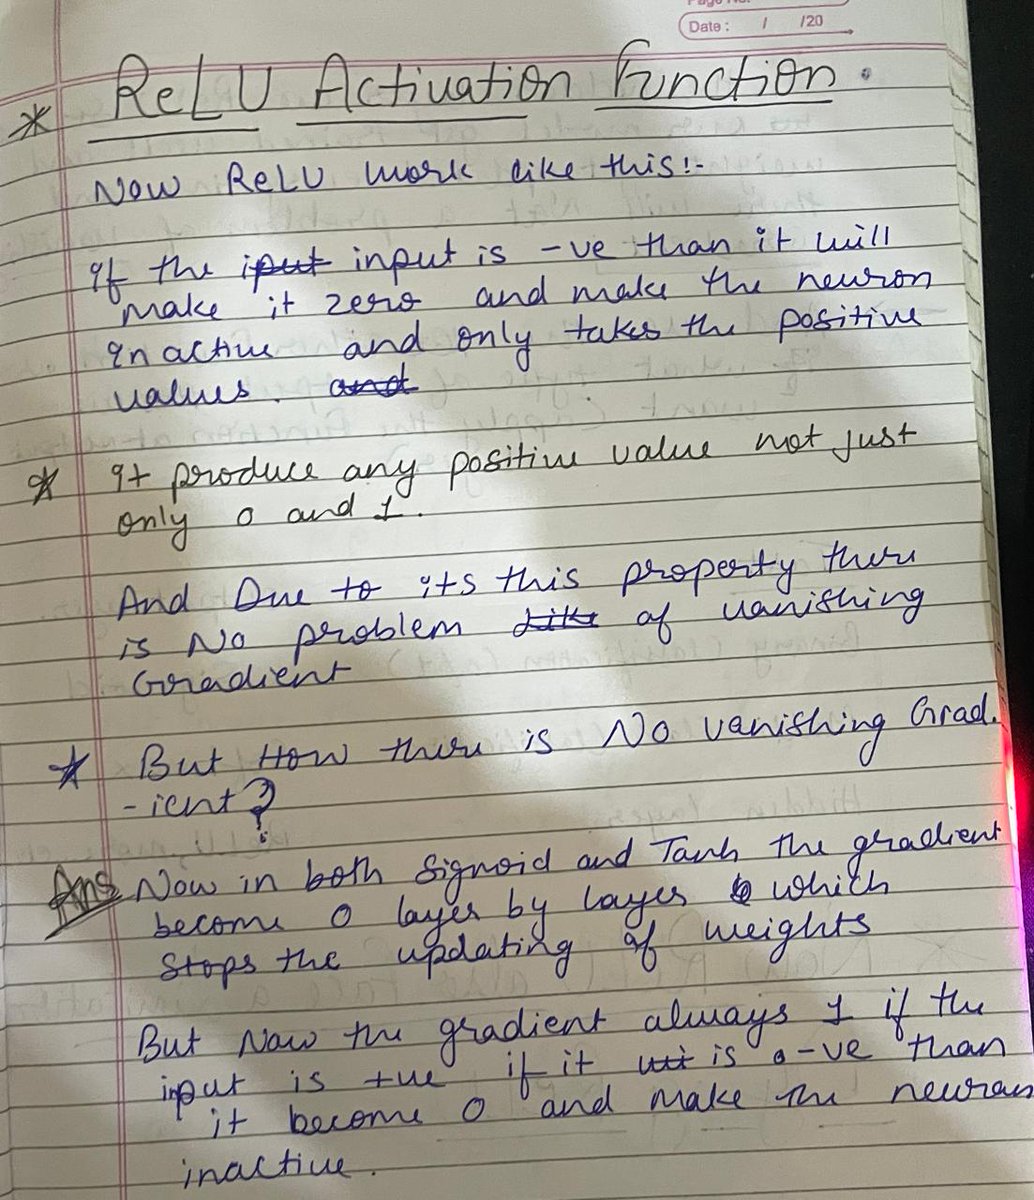 Page No.
Date: / /20
* ReLU Activation Function.
Now ReLU work like this:-
If the iput input is -ve than it will
make it zero and make the newron
inactive and only takes the positive
values. and
* It produce any positive value not just
only 0 and 1.
And Due to its this property there
is No problem like of vanishing
Gradient
* But How there is No vanishing Grad.
-ient?
Ans Now in both Sigmoid and Tanh the gradient
become 0 layer by layer which
Stops the updating of weights
But Now the gradient always 1 if the
input is +ve if it is a -ve than
it become 0 and make the newran
inactive.